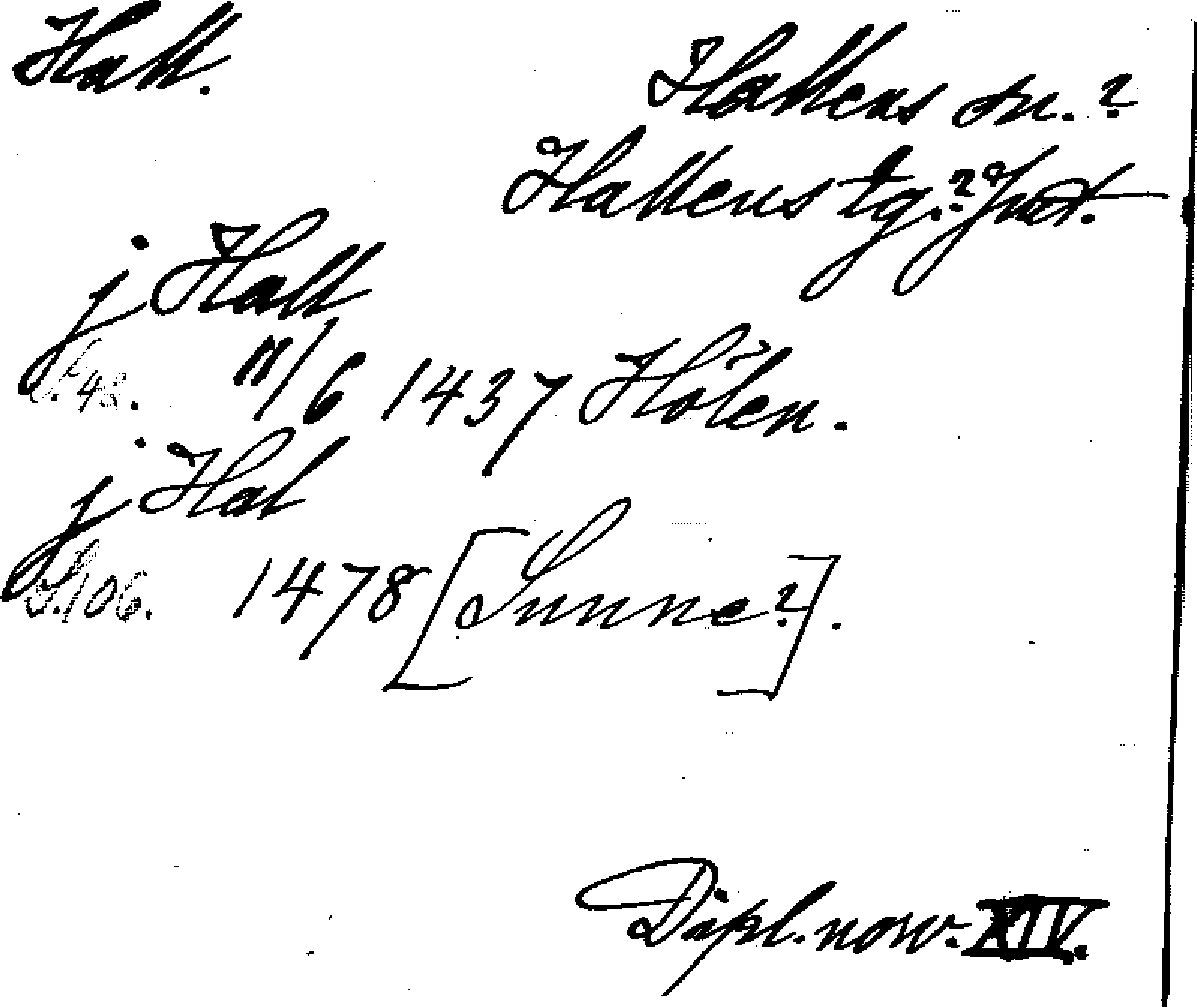 Hall. Hallens sn.?
Hallens tg.? Jmt.
j Hall
S. 48. 11/6 1437 Hölen.
j Hal
S. 106. 1478 [Sunne?].
Dipl. norv. XIV.